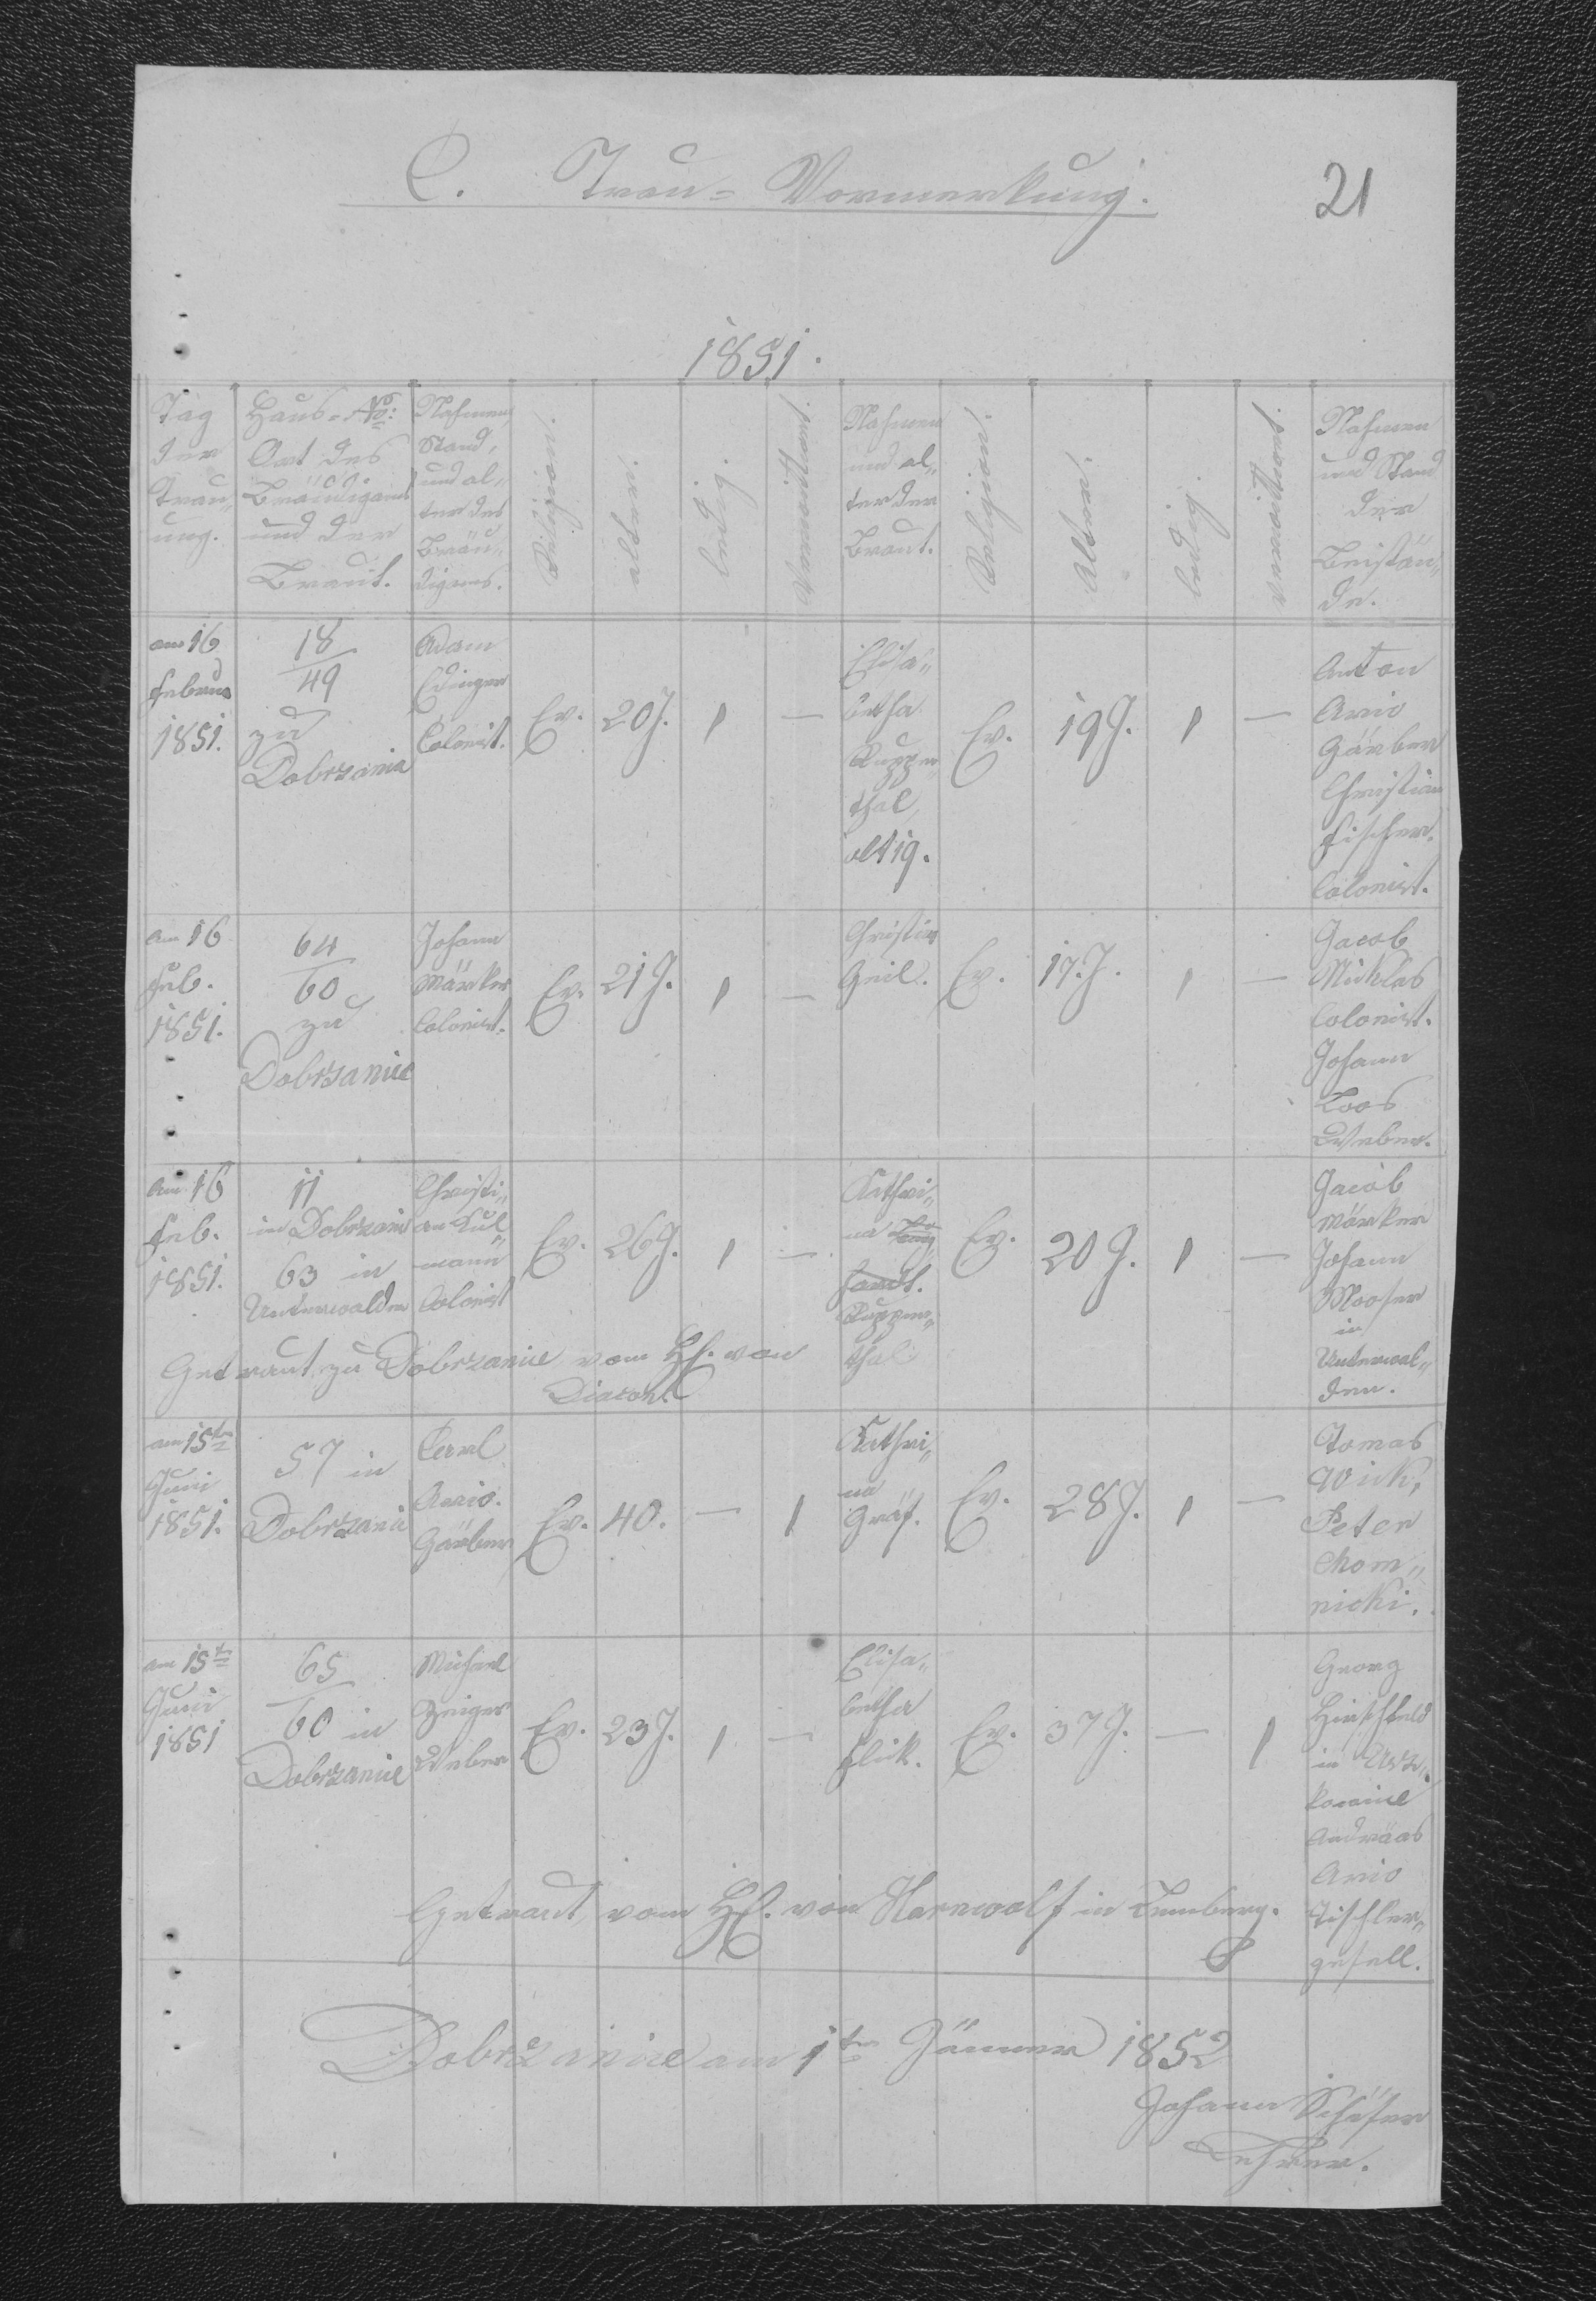 C. Trau= Vormerkung.
21
1851.
Tag
der
Trau„
ung.
Haus=No:
Ort des
Bräudigams
und der
Braut.
Nahmen,
Stand,
und al„
ter des
Bräu„
digams.
Religion.
Alter.
Ledig.
Verwittwet.
Nahmen
und al„
ter der
Braut.
Religion.
Alter.
Ledig.
Verwittwet.
Nahmen
und Stand
der
Beistän„
de.
am 16
Februa
1851.
18
49
zu
Dobrzanica
Adam
Edinger
Colonist.
Ev. 20 J. 1 —
Elisa„
betha
Rupper„
thal,
Ev. 19 J. 1 —
Anton
Ario
Gärber
Christian
Fischer.
Colonist.
Am 16
Feb.
1851.
64
60
zu
Dobrzanice
Johann
Märker
Colonist.
Ev. 21 J. 1 —
Christina
Geil.
Ev. 17. J. 1 —
Jacob
Micklas
Colonist.
Johann
Loos
Weber.
Am 16
Feb.
1851.
11
in Dobrzanic
63 in
Unterwalden
Christi„
an Kul„
mann
Colonist
Ev. 26 J. 1 —
Kathri„
na
Rupper„
thal
Ev. 20 J. 1 —
Jacob
Märker
Johann
Mooser
in
Unterwal„
den.
Getraut zu Dobrzanice vom H. von
Diacon.
am 15ten
Juni
1851.
57 in
Dobrzanic
Carl
Ario.
Gärber
Ev. 40. — 1
Kathri„
na
Gräf.
Ev. 28 J. 1 —
Tomas
Wick,
Peter
Chom„
nicki.
am 15te
Juni
1851
65
60 in
Dobrzanice
Michael
Zeiger
Weber
Ev. 23 J. 1 —
Elisa„
betha
Flick.
Ev. 37 J. — 1
Georg
Hirschfeld
in Usz„
kowice
Andräas
Ario
Tischler„
gesell.
Getraut, vom H. von Harnwolf in Lemberg.
Dobrzanice am 1ten Jänner 1852
Johann Schäfer
Lehrer.